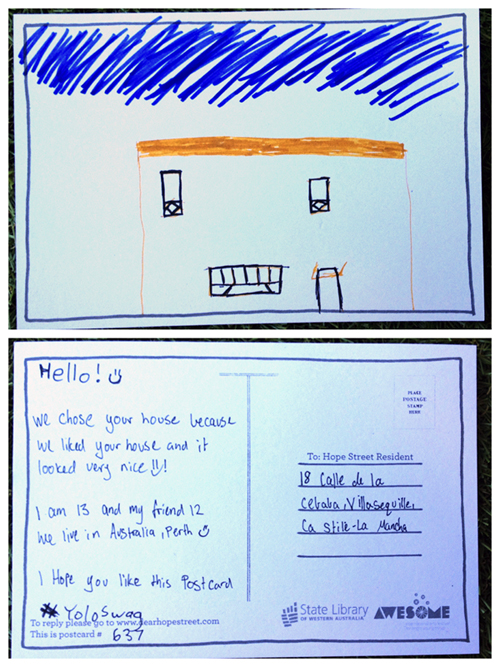 Hello! ☺
We chose your house because
we liked your house and it
looked very nice ☺!
I am 13 and my friend 12
we live in Australia, Perth ☺
I Hope you like this Postcard
# YoloSwag
To reply please go to www.dearhopestreet.com
This is postcard # 637
PLACE
POSTAGE
STAMP
HERE
To: Hope Street Resident
18 Calle de la
Cebaba, Villasequille,
Ca Stille-La Mancha
State Library
OF WESTERN AUSTRALIA
AWESOME